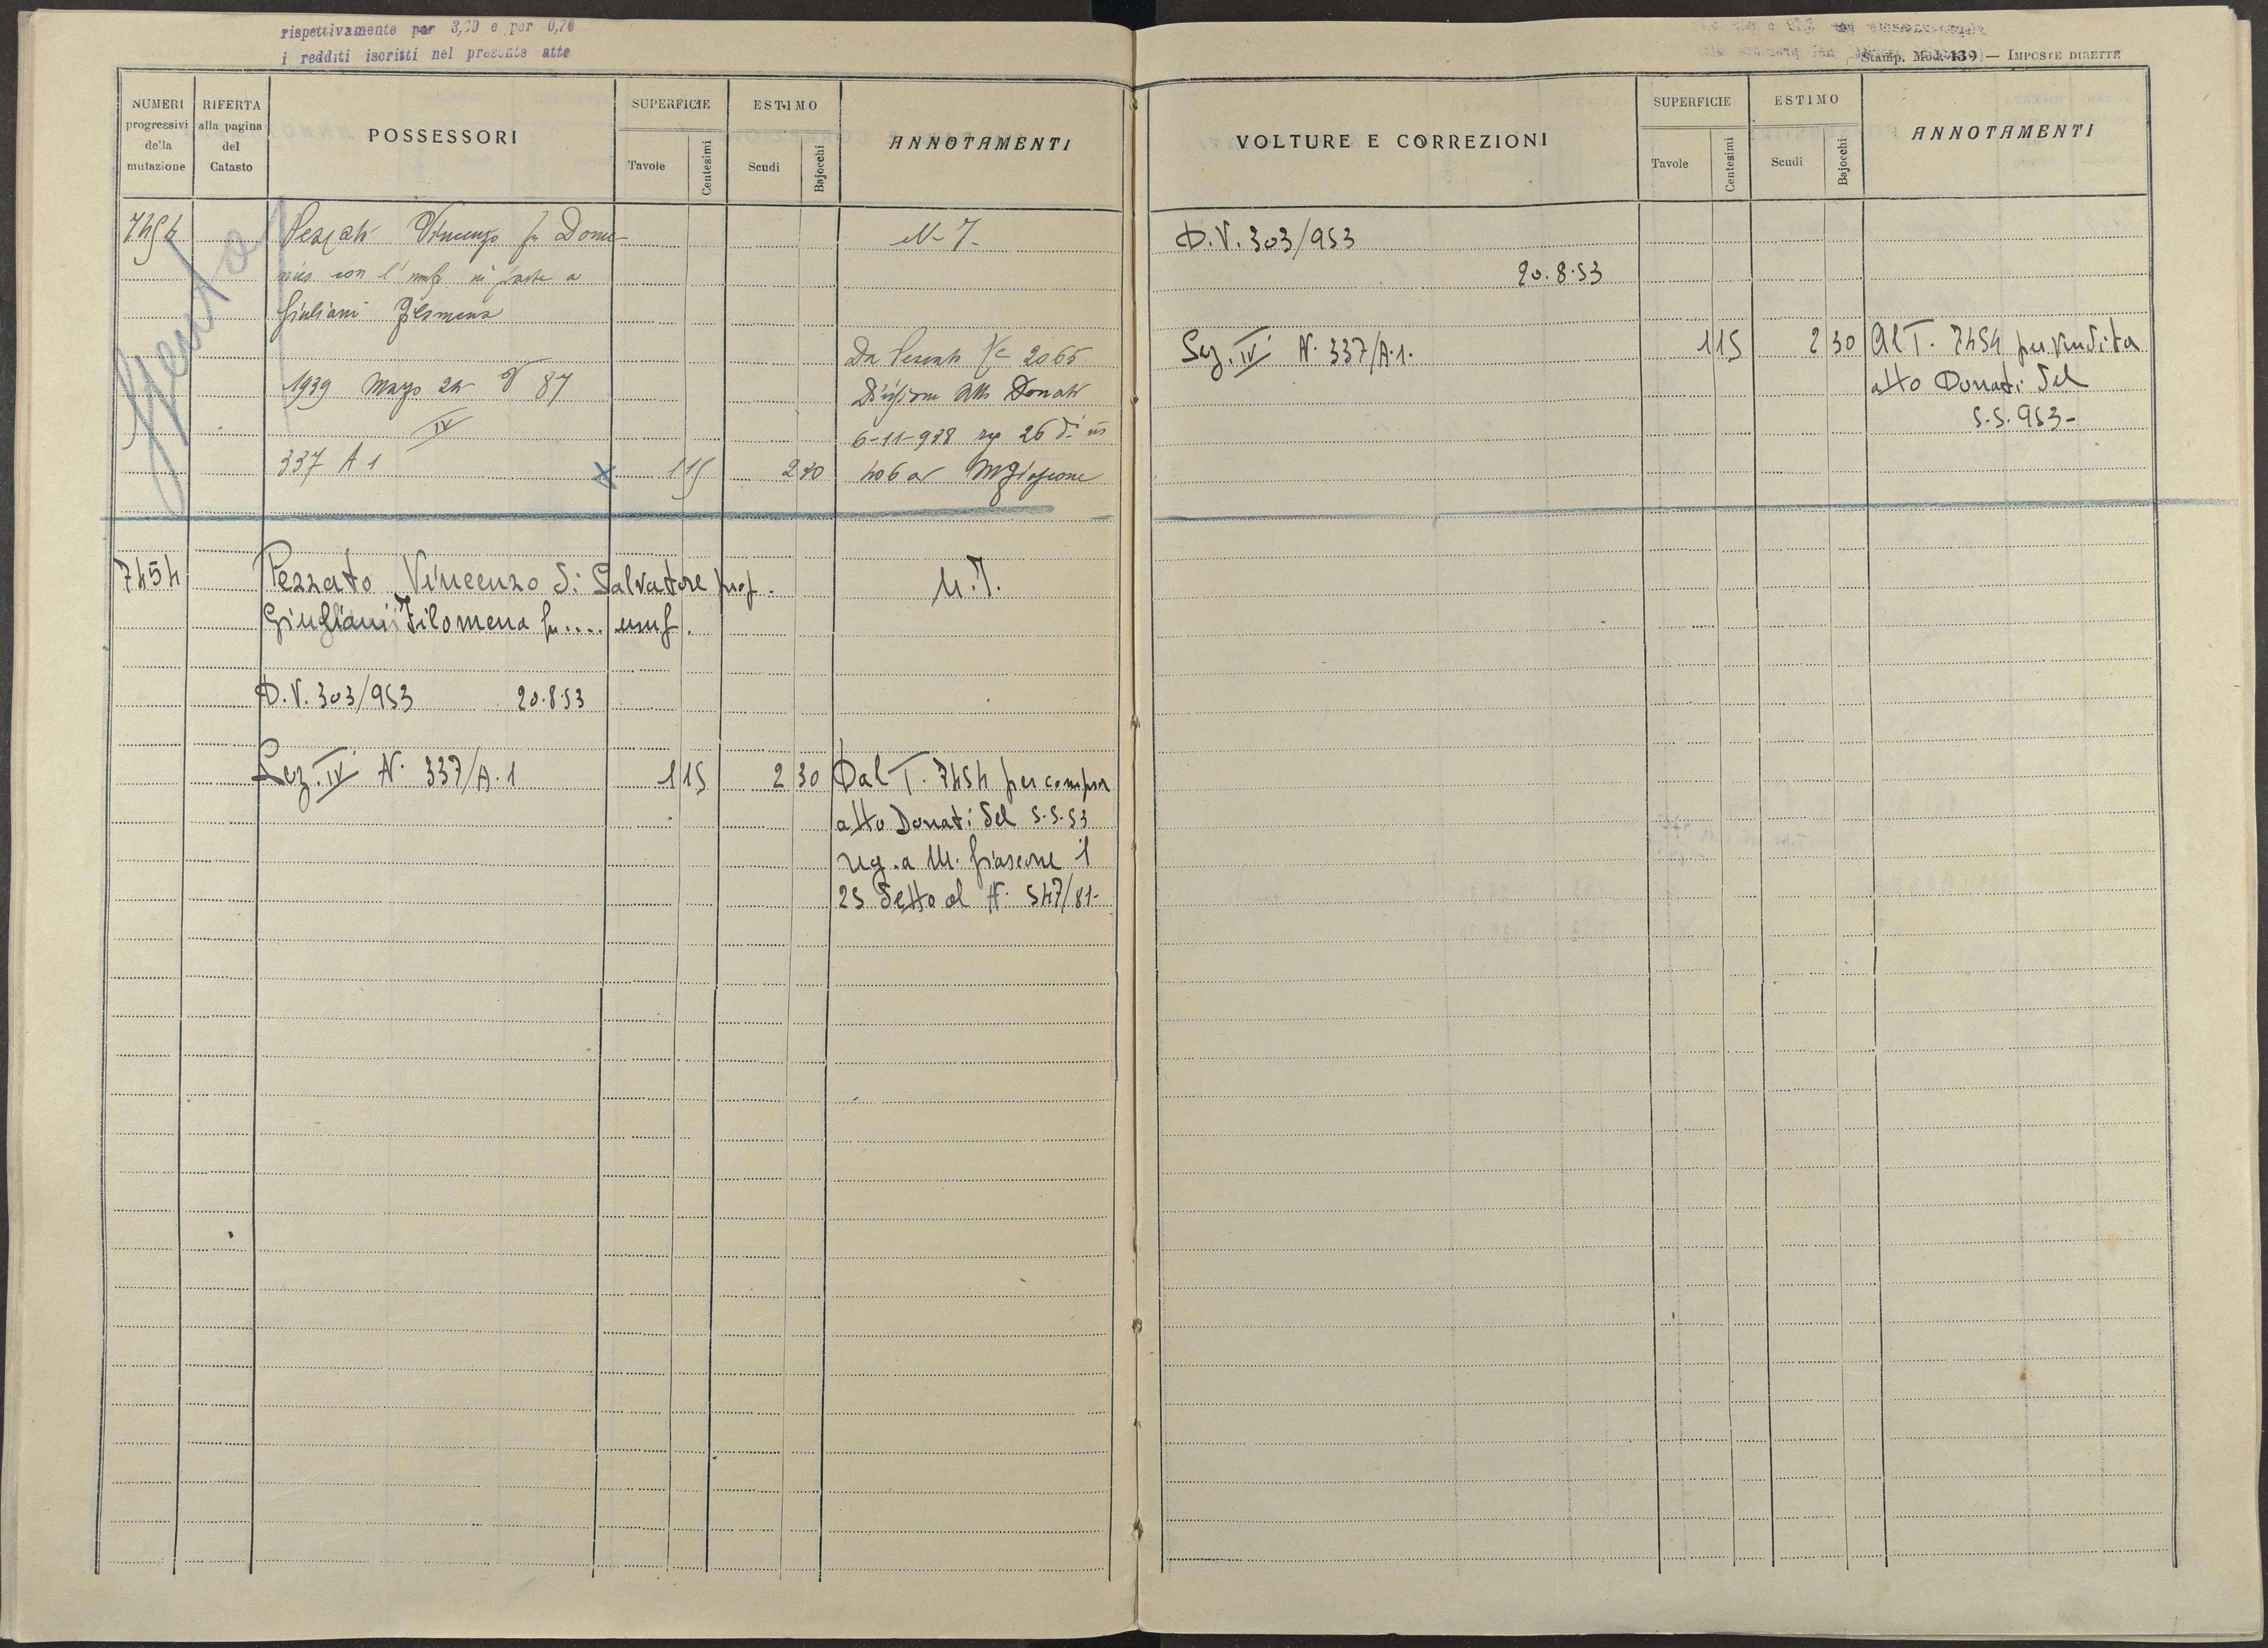 rispettivamente per 3,20 e per 0,70
i redditi iscritti nel presente atto
NUMERI progressivi della mutazione
RIFERTA alla pagina del Catasto
POSSESSORI
SUPERFICIE
Tavole
Centesimi
ESTIMO
Scudi
Bajocchi
ANNOTAMENTI
7454
Vincenzo fu Dome
nico con l' usuf in parte a
Giuliani Filomena
1939 Marzo 24 V 87
IV
337 A 1 115 230
N- 7-
Da 2065
Divisione Atto Donati
6-11-938 rep 26 di
406 a MGiascone
7454
Pezzato Vincenzo di Salvatore prop.
Giugliani Filomena fu.... usuf.
D.V. 303/953 20.8.53
Sez. IV N. 337/A.1 1 15 2 30
Dal T. 7454 per compra
atto Donati del 5.5.53
reg. a M. Giascone il
25 detto al N. 547/81-
Stamp. Mod. 139 — IMPOSTE DIRETTE
VOLTURE E CORREZIONI
SUPERFICIE
Tavole
Centesimi
ESTIMO
Scudi
Bajocchi
ANNOTAMENTI
D.V. 303/953
20.8.53
Sez. IV N. 337/A.1. 1 15 2 30
Al T. 7454 per vendita
atto Donati del
5.5.953-